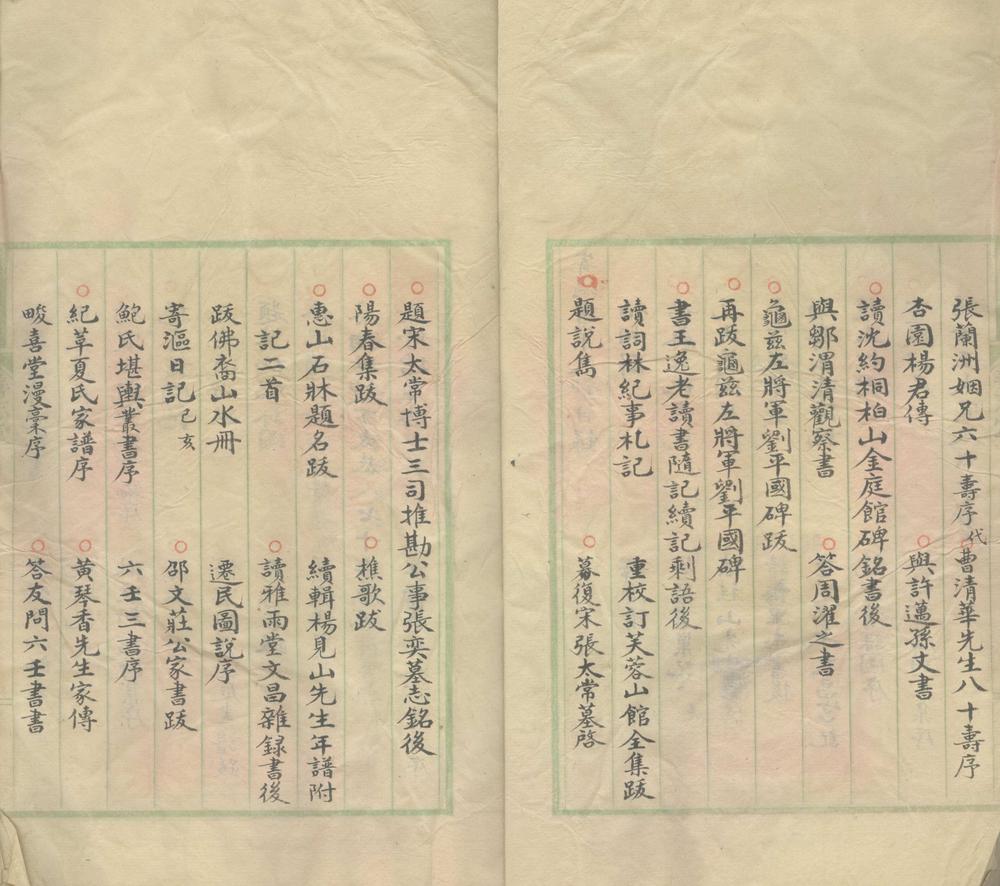 張蘭洲姻兄六十壽序代 曹清華先生八十壽序
杏園楊君傳 與許邁孫丈書
讀沈約桐柏山金庭館碑銘書後
與鄒渭清觀察書 答周濯之書
龜茲左將軍劉平國碑跋
再跋龜茲左將軍劉平國碑
書王逸老讀書隨記續記剩語後
讀詞林紀事札記 重校訂芙蓉山館全集跋
題說雋 募復宋張太常墓啓
題宋太常博士三司推勘公事張奕墓志銘後
陽春集跋 樵歌跋
惠山石牀題名跋 續輯楊見山先生年譜附
記二首 讀雅雨堂文昌雜録書後
跋佛裔山水冊 遷民圖說序
寄漚日記己亥 邵文莊公家書跋
鮑氏堪輿叢書序 六壬三書序
紀草夏氏家譜序 黄琴香先生家傳
畯喜堂漫稾序 答友問六壬書書